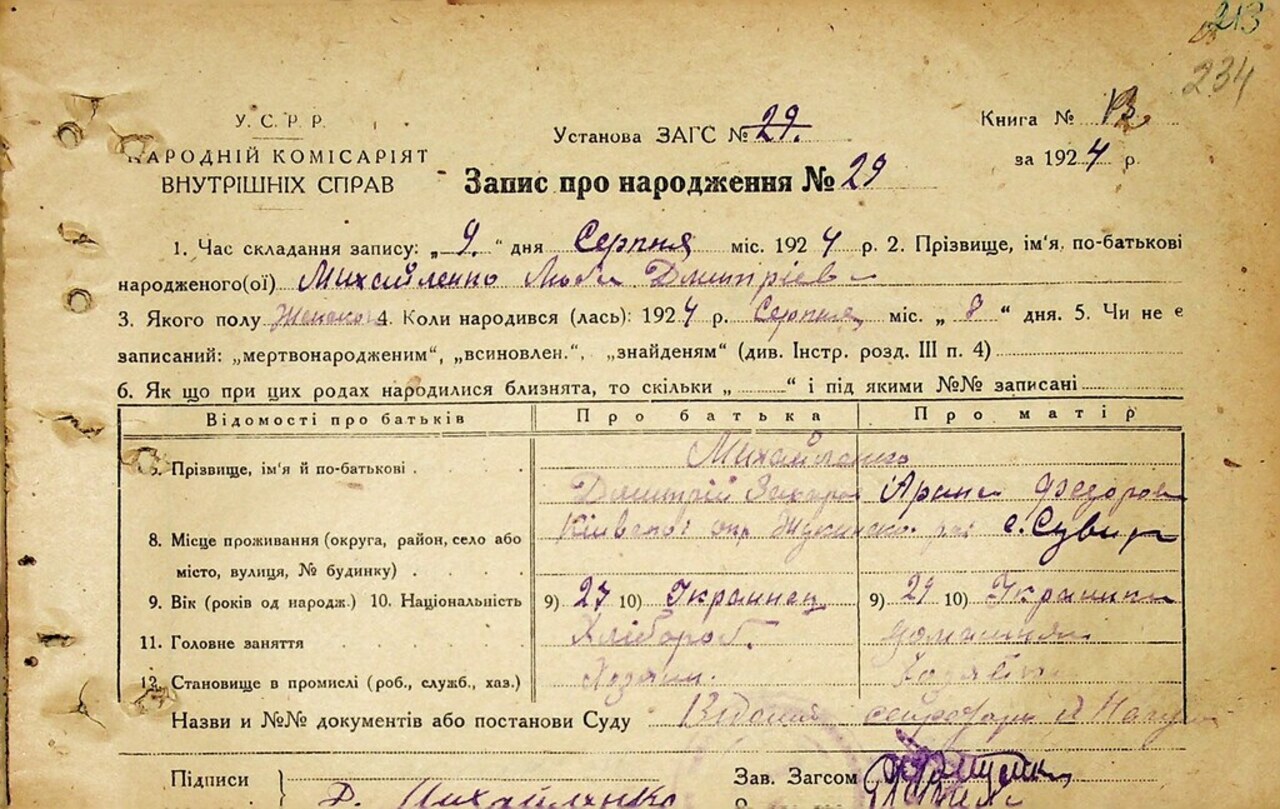 213
234
У. С. Р. Р.
НАРОДНІЙ КОМІСАРІЯТ
ВНУТРІШНІХ СПРАВ
Установа ЗАГС № 29.
Книга № 13
за 1924 р.
Запис про народження № 29
1. Час складання запису: „9.“ дня Серпня міс. 1924 р. 2. Прізвище, ім'я, по-батькові
народженого(ої) Михайленко Люба Дмитріев
3. Якого полу 4. Коли народився (лась): 1924 р. Серпня міс. „8“ дня. 5. Чи не є
записаний: „мертвонародженим“, „всиновлен.“, „знайденям“ (див. Інстр. розд. III п. 4)
6. Як що при цих родах народилися близнята, то скільки „ “ і під якими №№ записані
Відомості про батьків Про батька Про матір
7. Прізвище, ім'я й по-батькові Михайленко
Дмитрій Захаров Арина Федоров
8. Місце проживання (округа, район, село або окр. с. Сувид
місто, вулиця, № будинку)
9. Вік (років од народж.) 10. Національність 9) 27 10) Украинец 9) 29 10) Украинка
11. Головне заняття Хлібороб.
12. Становище в промислі (роб., служб., хаз.) Хозяин.
Назви и №№ документів або постанови Суду
Підписи Зав. Загсом
Д. Михайленко